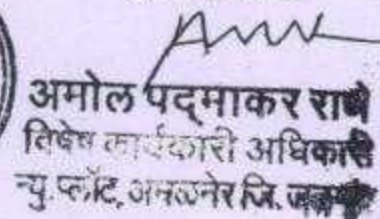 अमोल पद्माकर राणे
विषेष कार्यकारी अधिकारी
न्यु.प्लॉट, अमळनेर जि. जळगांव